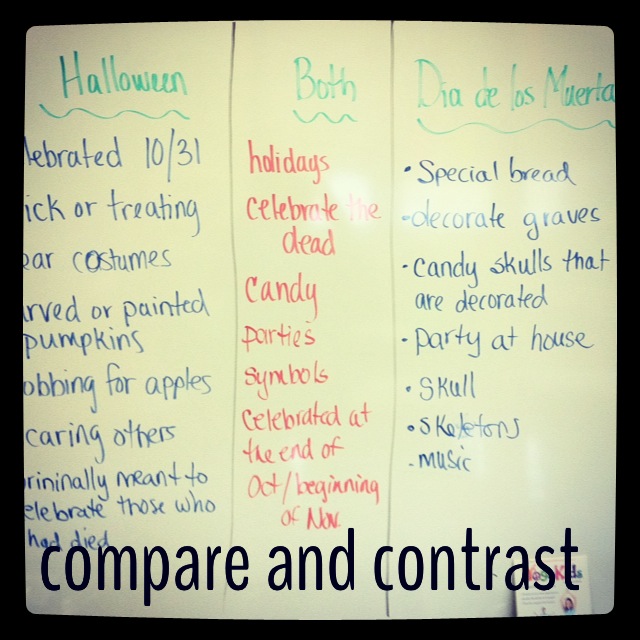 Halloween
lebrated 10/31
ick or treating
ear costumes
arved or painted
pumpkins
obbing for apples
caring others
rininally meant to
elebrate those who
had died
Both
holidays
celebrate the
dead
Candy
parties
symbols
celebrated at
the end of
Oct/beginning
of Nov.
Dia de los Muerta
• Special bread
• decorate graves
• candy skulls that
are decorated
• party at house
• Skull
• skeletons
• music
compare and contrast